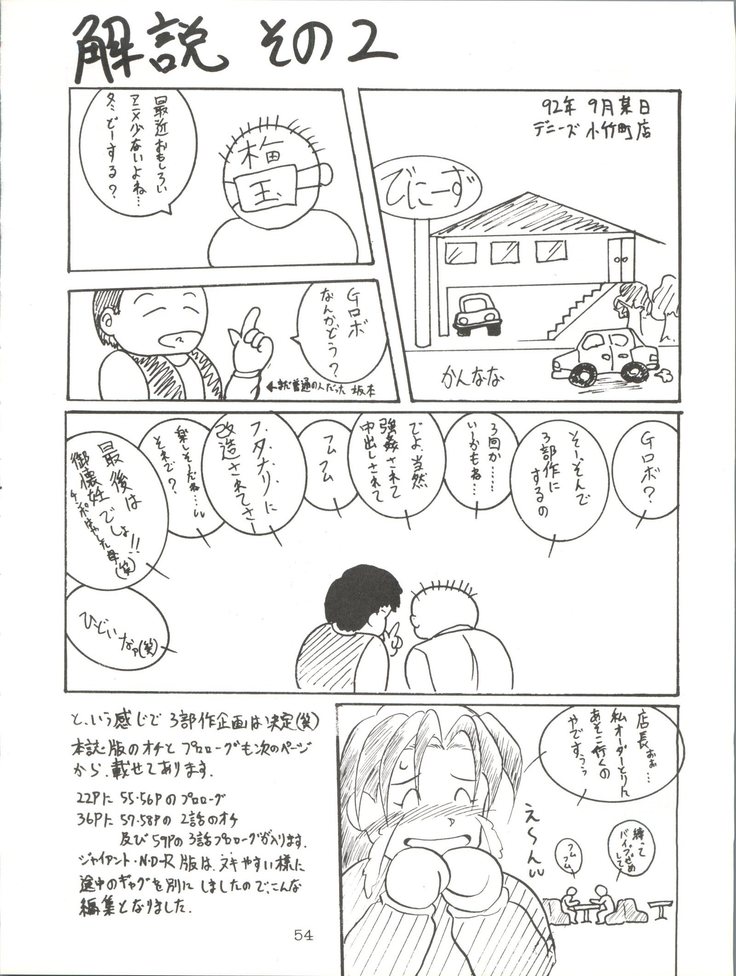 解説 その2
92年 9月某日
デニーズ 小竹町店
でにーず
かんなな
最近おもしろい
アニメ少ないよね…
冬どーする?
梅
玉
Gロボ
なんかどう?
←まだ普通の人だった 坂本
Gロボ?
そーそんで
3部作に
するの
3回か……
いーかもね…
でよ当然
強姦されて
中出しされて
フムフム
フタナリに
改造されてさ
楽しそーだね…
それで?
最後は
御懐妊でしょ!!
ひどいなァ(笑)
と、いう感じで3部作企画は決定(笑)
本誌版のオチとプロローグも次のページ
から、載せてあります.
22Pに 55・56Pの プロローグ
36Pに 57・58Pの 2話のオチ
及び 59Pの 3話プロローグが入ります.
ジャイアント・N・D・R版は、ヌキやすい様に
途中のギャグを別にしましたので、こんな
編集となりました.
店長ぉぉ…
私オーダーとりに
あそこ行くの
ヤですぅぅ
え〜ん
縛って
バイブ責め
して
フム
フム
54